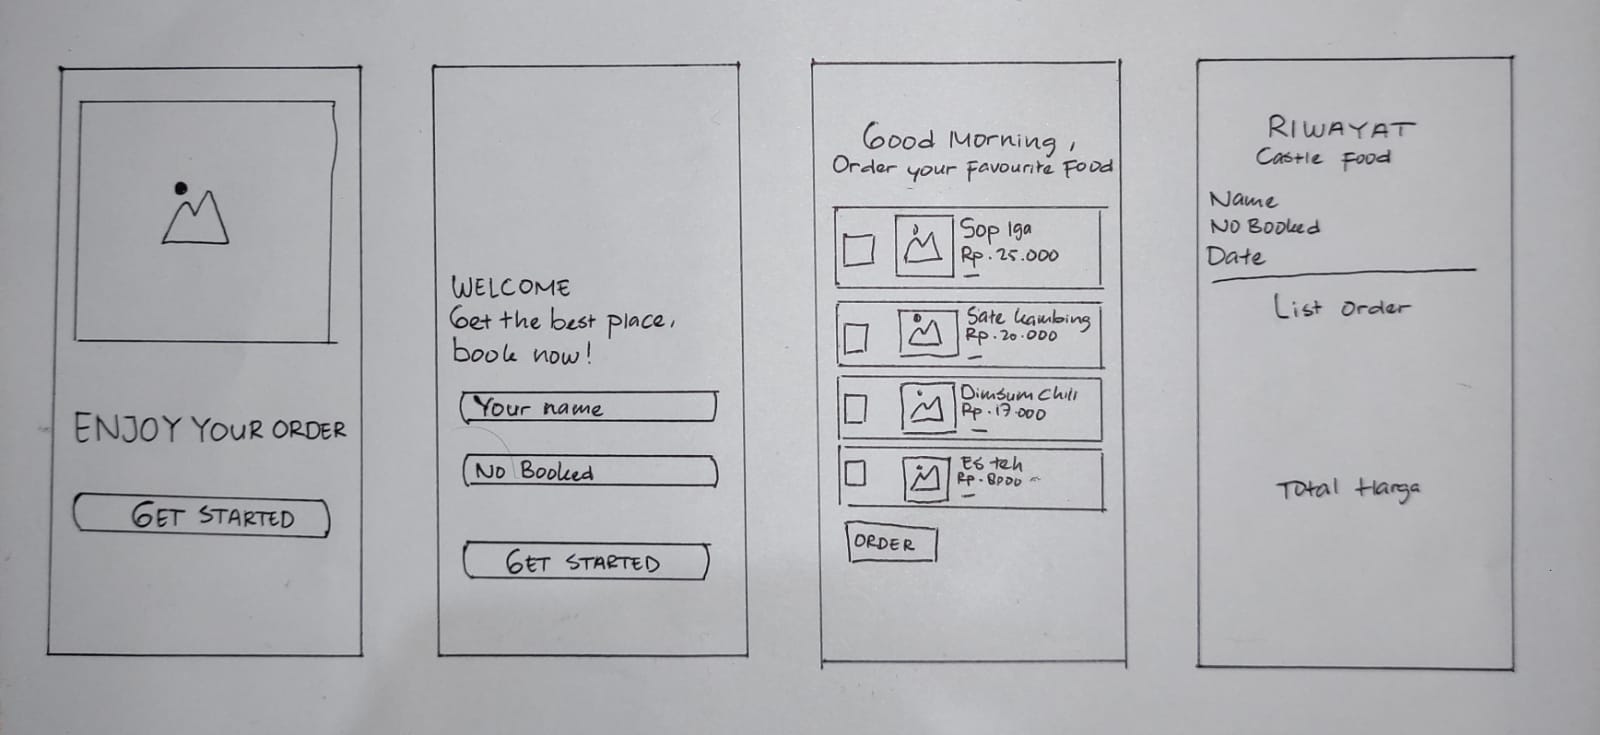 ENJOY YOUR ORDER
GET STARTED
WELCOME
Get the best place,
book now!
Your name
No Booked
GET STARTED
Good Morning,
Order your Favourite Food
Sop Iga
Rp. 25.000
Sate kambing
Rp. 20.000
Dimsum Chili
Rp. 17.000
Es teh
Rp. 8000
ORDER
RIWAYAT
Castle Food
Name
No Booked
Date
List Order
Total Harga